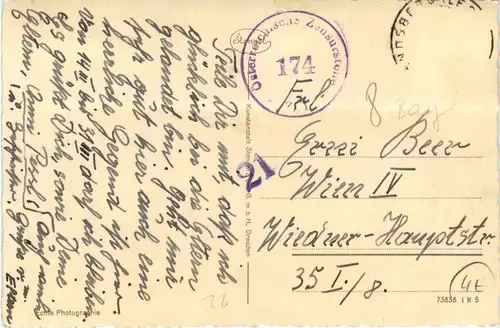 Teile Dir mit, daß ich
glücklich bei den Eltern
gelandet bin. Geht mir
sehr gut hier und eine
herrliche Gegend ist hier
Von 14/II bis 31/III darf ich bleiben.
Es grüßt Dich, sowie Deine
Eltern, Anni
Auch meine
Eltern
Echte Photographie
Kunstanstalt
G. m. b. H., Dresden
Österreichische Zensurstelle
174
21
8. Bay
Frl.
Erni Beer
Wien IV
Wiedner-Hauptstr
35 I./8.
73838 I N S
4t
26